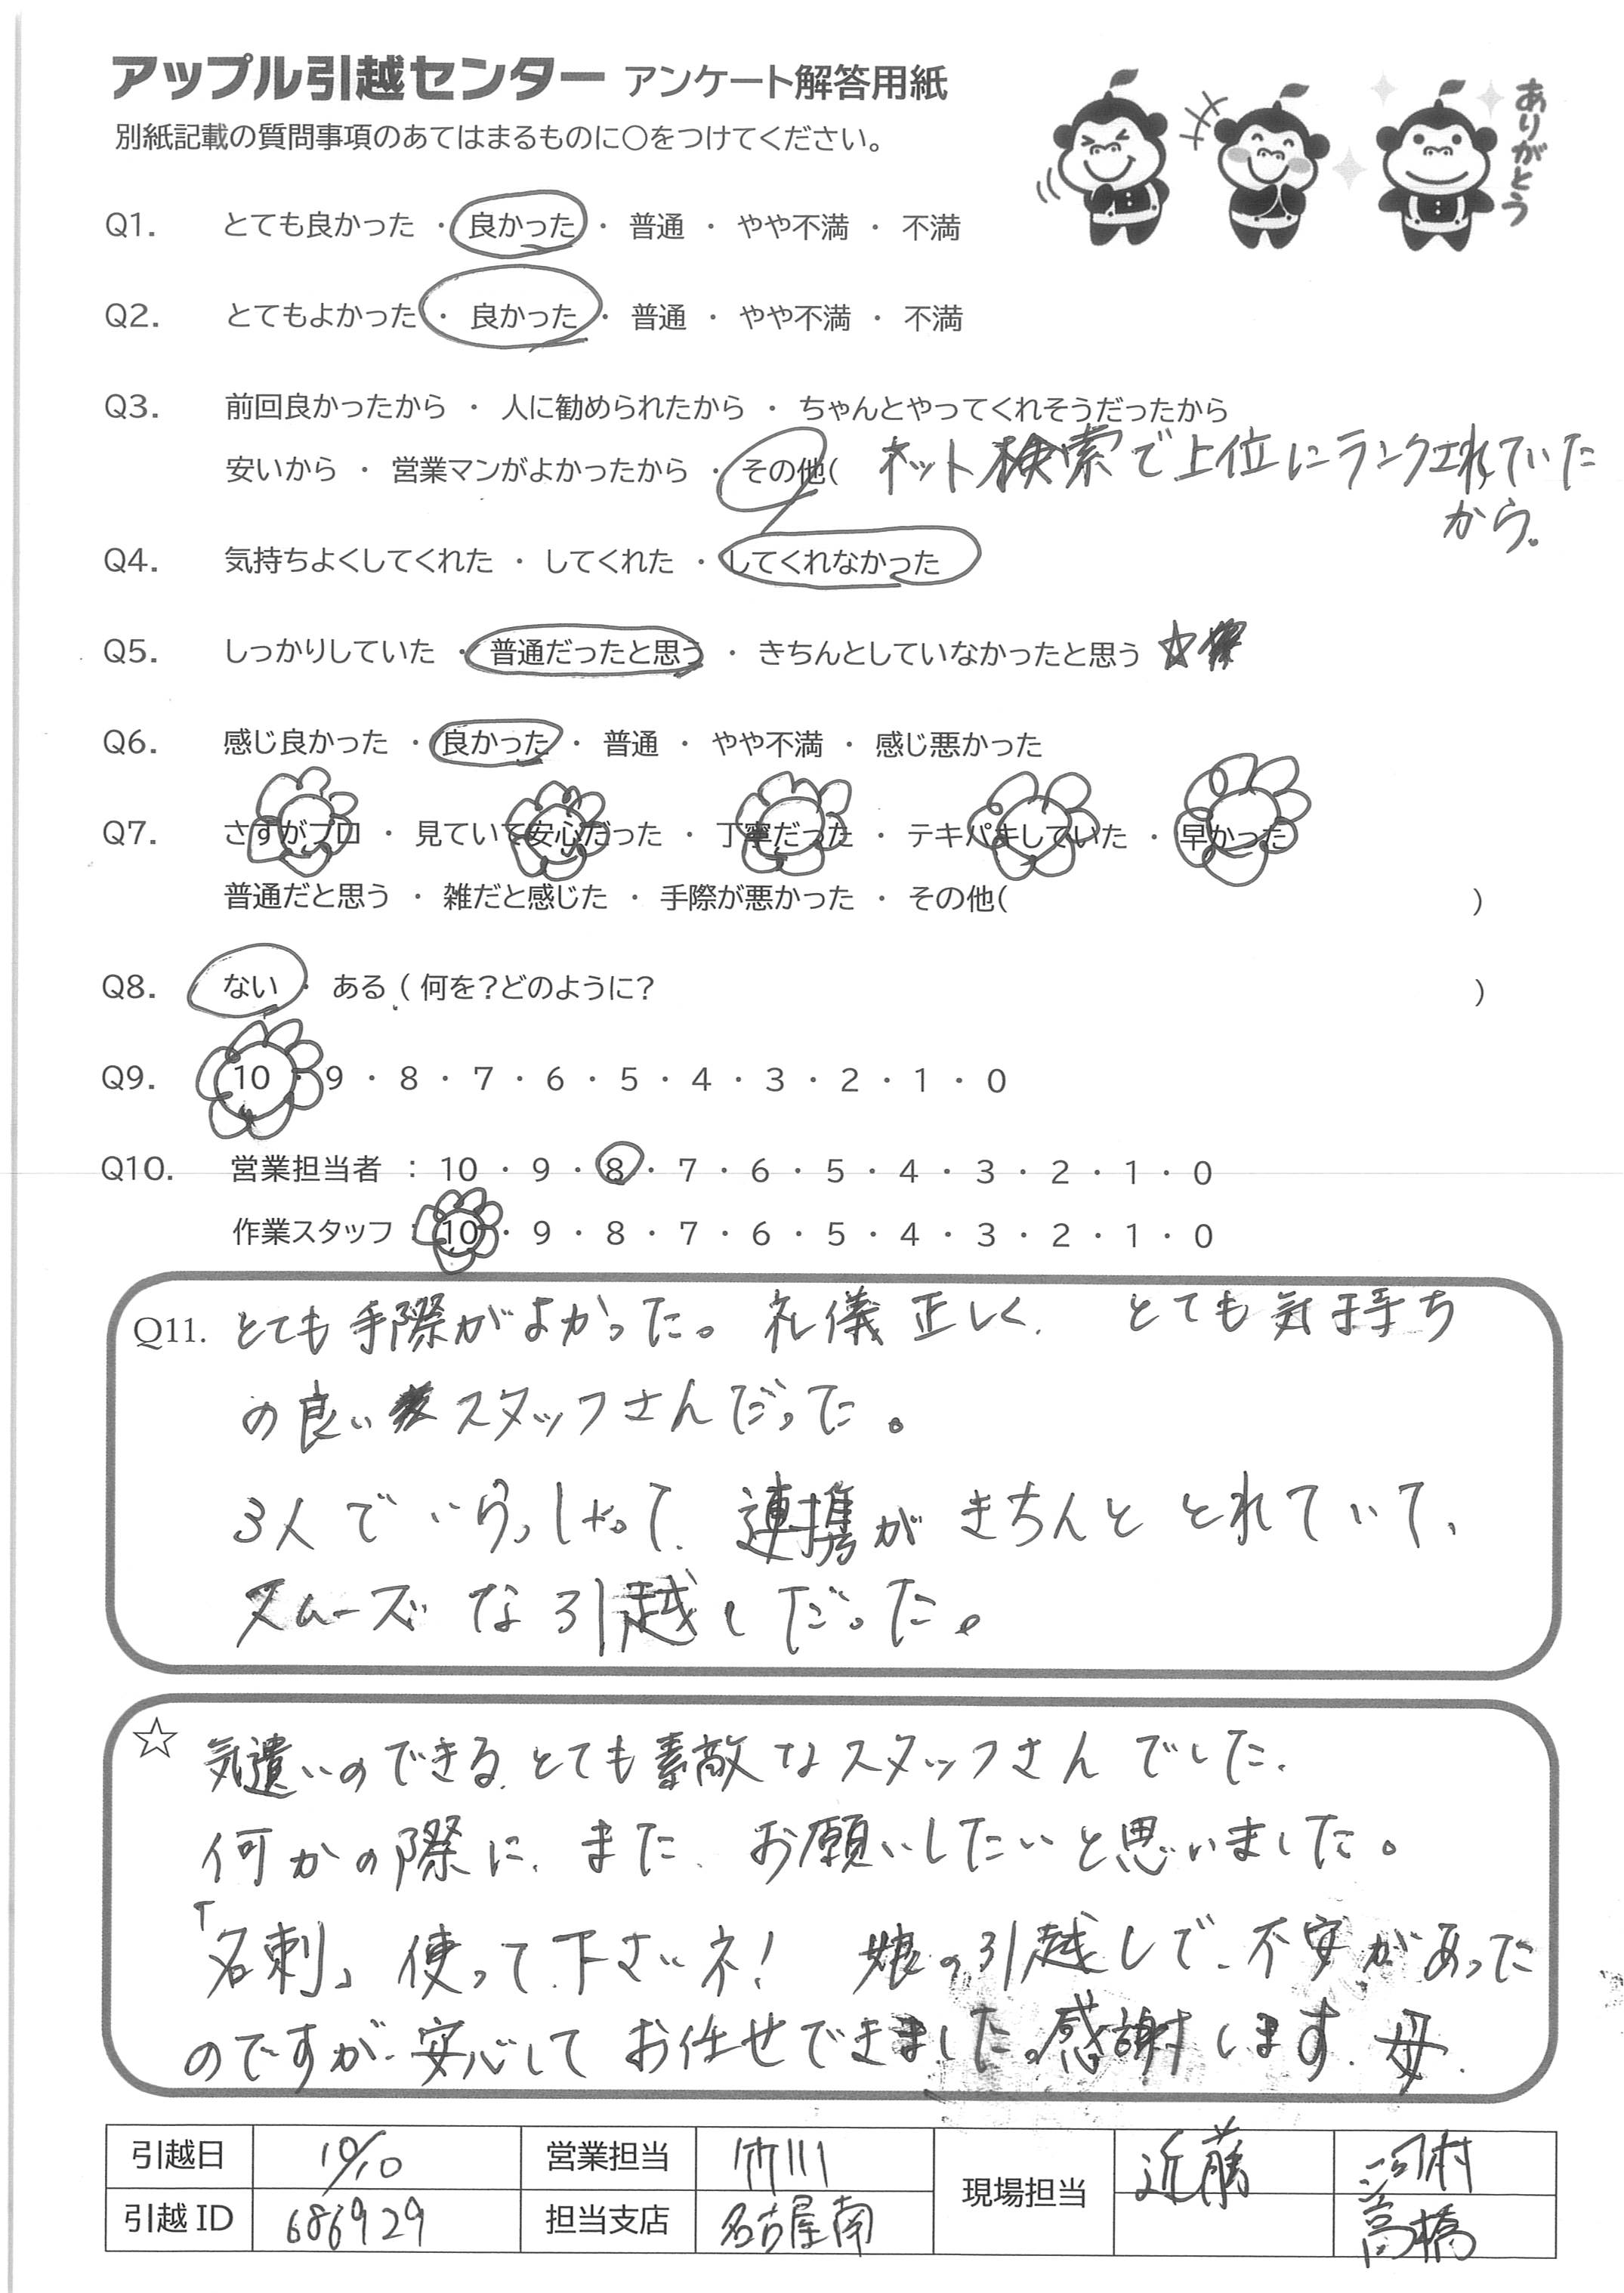 アップル引越センター アンケート解答用紙
ありがとう
別紙記載の質問事項のあてはまるものに○をつけてください。
Q1. とても良かった ・ 良かった ・ 普通 ・ やや不満 ・ 不満
Q2. とてもよかった ・ 良かった ・ 普通 ・ やや不満 ・ 不満
Q3. 前回良かったから ・ 人に勧められたから ・ ちゃんとやってくれそうだったから
安いから ・ 営業マンがよかったから ・ その他( ネット検索で上位にランクされていた
から。
Q4. 気持ちよくしてくれた ・ してくれた ・ してくれなかった
Q5. しっかりしていた ・ 普通だったと思う ・ きちんとしていなかったと思う ☆
Q6. 感じ良かった ・ 良かった ・ 普通 ・ やや不満 ・ 感じ悪かった
Q7. さすがプロ ・ 見ていて安心だった ・ 丁寧だった ・ テキパキしていた ・ 早かった
普通だと思う ・ 雑だと感じた ・ 手際が悪かった ・ その他( )
Q8. ない ・ ある ( 何を?どのように? )
Q9. 10 ・ 9 ・ 8 ・ 7 ・ 6 ・ 5 ・ 4 ・ 3 ・ 2 ・ 1 ・ 0
Q10. 営業担当者 : 10 ・ 9 ・ 8 ・ 7 ・ 6 ・ 5 ・ 4 ・ 3 ・ 2 ・ 1 ・ 0
作業スタッフ : 10 ・ 9 ・ 8 ・ 7 ・ 6 ・ 5 ・ 4 ・ 3 ・ 2 ・ 1 ・ 0
Q11. とても手際がよかった。礼儀正しく、とても気持ち
の良いスタッフさんだった。
3人でいらっしゃって、連携がきちんととれていて、
スムーズな引越しだった。
☆ 気遣いのできる、とても素敵なスタッフさんでした。
何かの際に、また、お願いしたいと思いました。
「名刺」使って下さいネ! 娘の引越しで、不安があった
のですが、安心してお任せできました。感謝します。母.
引越日 10/10 営業担当 竹川 現場担当 近藤 河村
引越ID 686929 担当支店 名古屋南 高橋